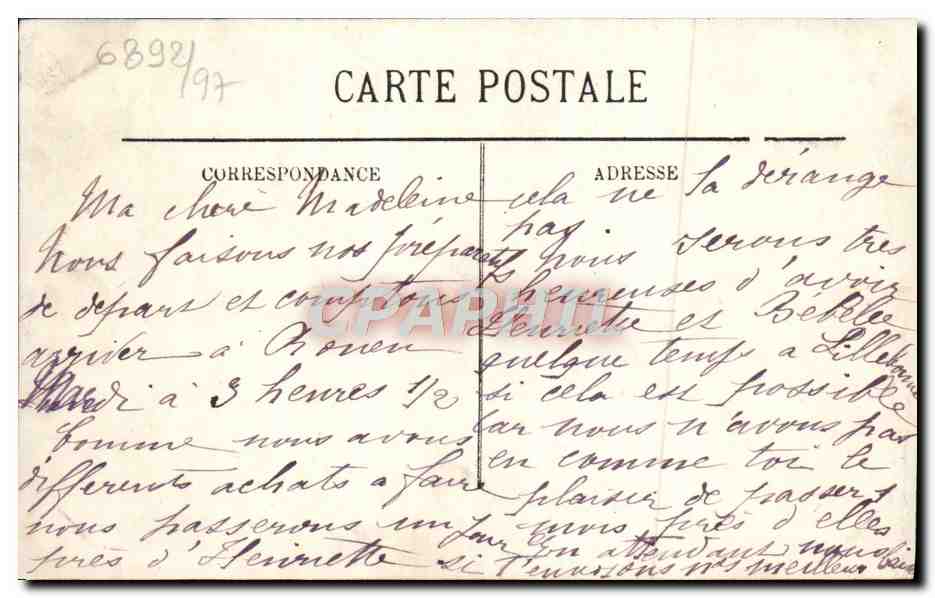 6892/97
CARTE POSTALE
CORRESPONDANCE
Ma chère Madeleine
Nous faisons nos préparatifs
de départ et comptons
arriver à Rouen
à 3 heures 1/2
Comme nous avons
différents achats a faire
nous passerons un jour
près d'Henriette si
ADRESSE
cela ne la dérange
pas
nous serons très
heureuses d'avoir
Henriette et Bébelle
quelque temps a Lillebonne
si cela est possible
Car nous n'avons pas
eu comme toi le
plaisir de passer 1
mois près d'elles
En attendant nous
t'envoyons nos meilleurs
CPAPHIL